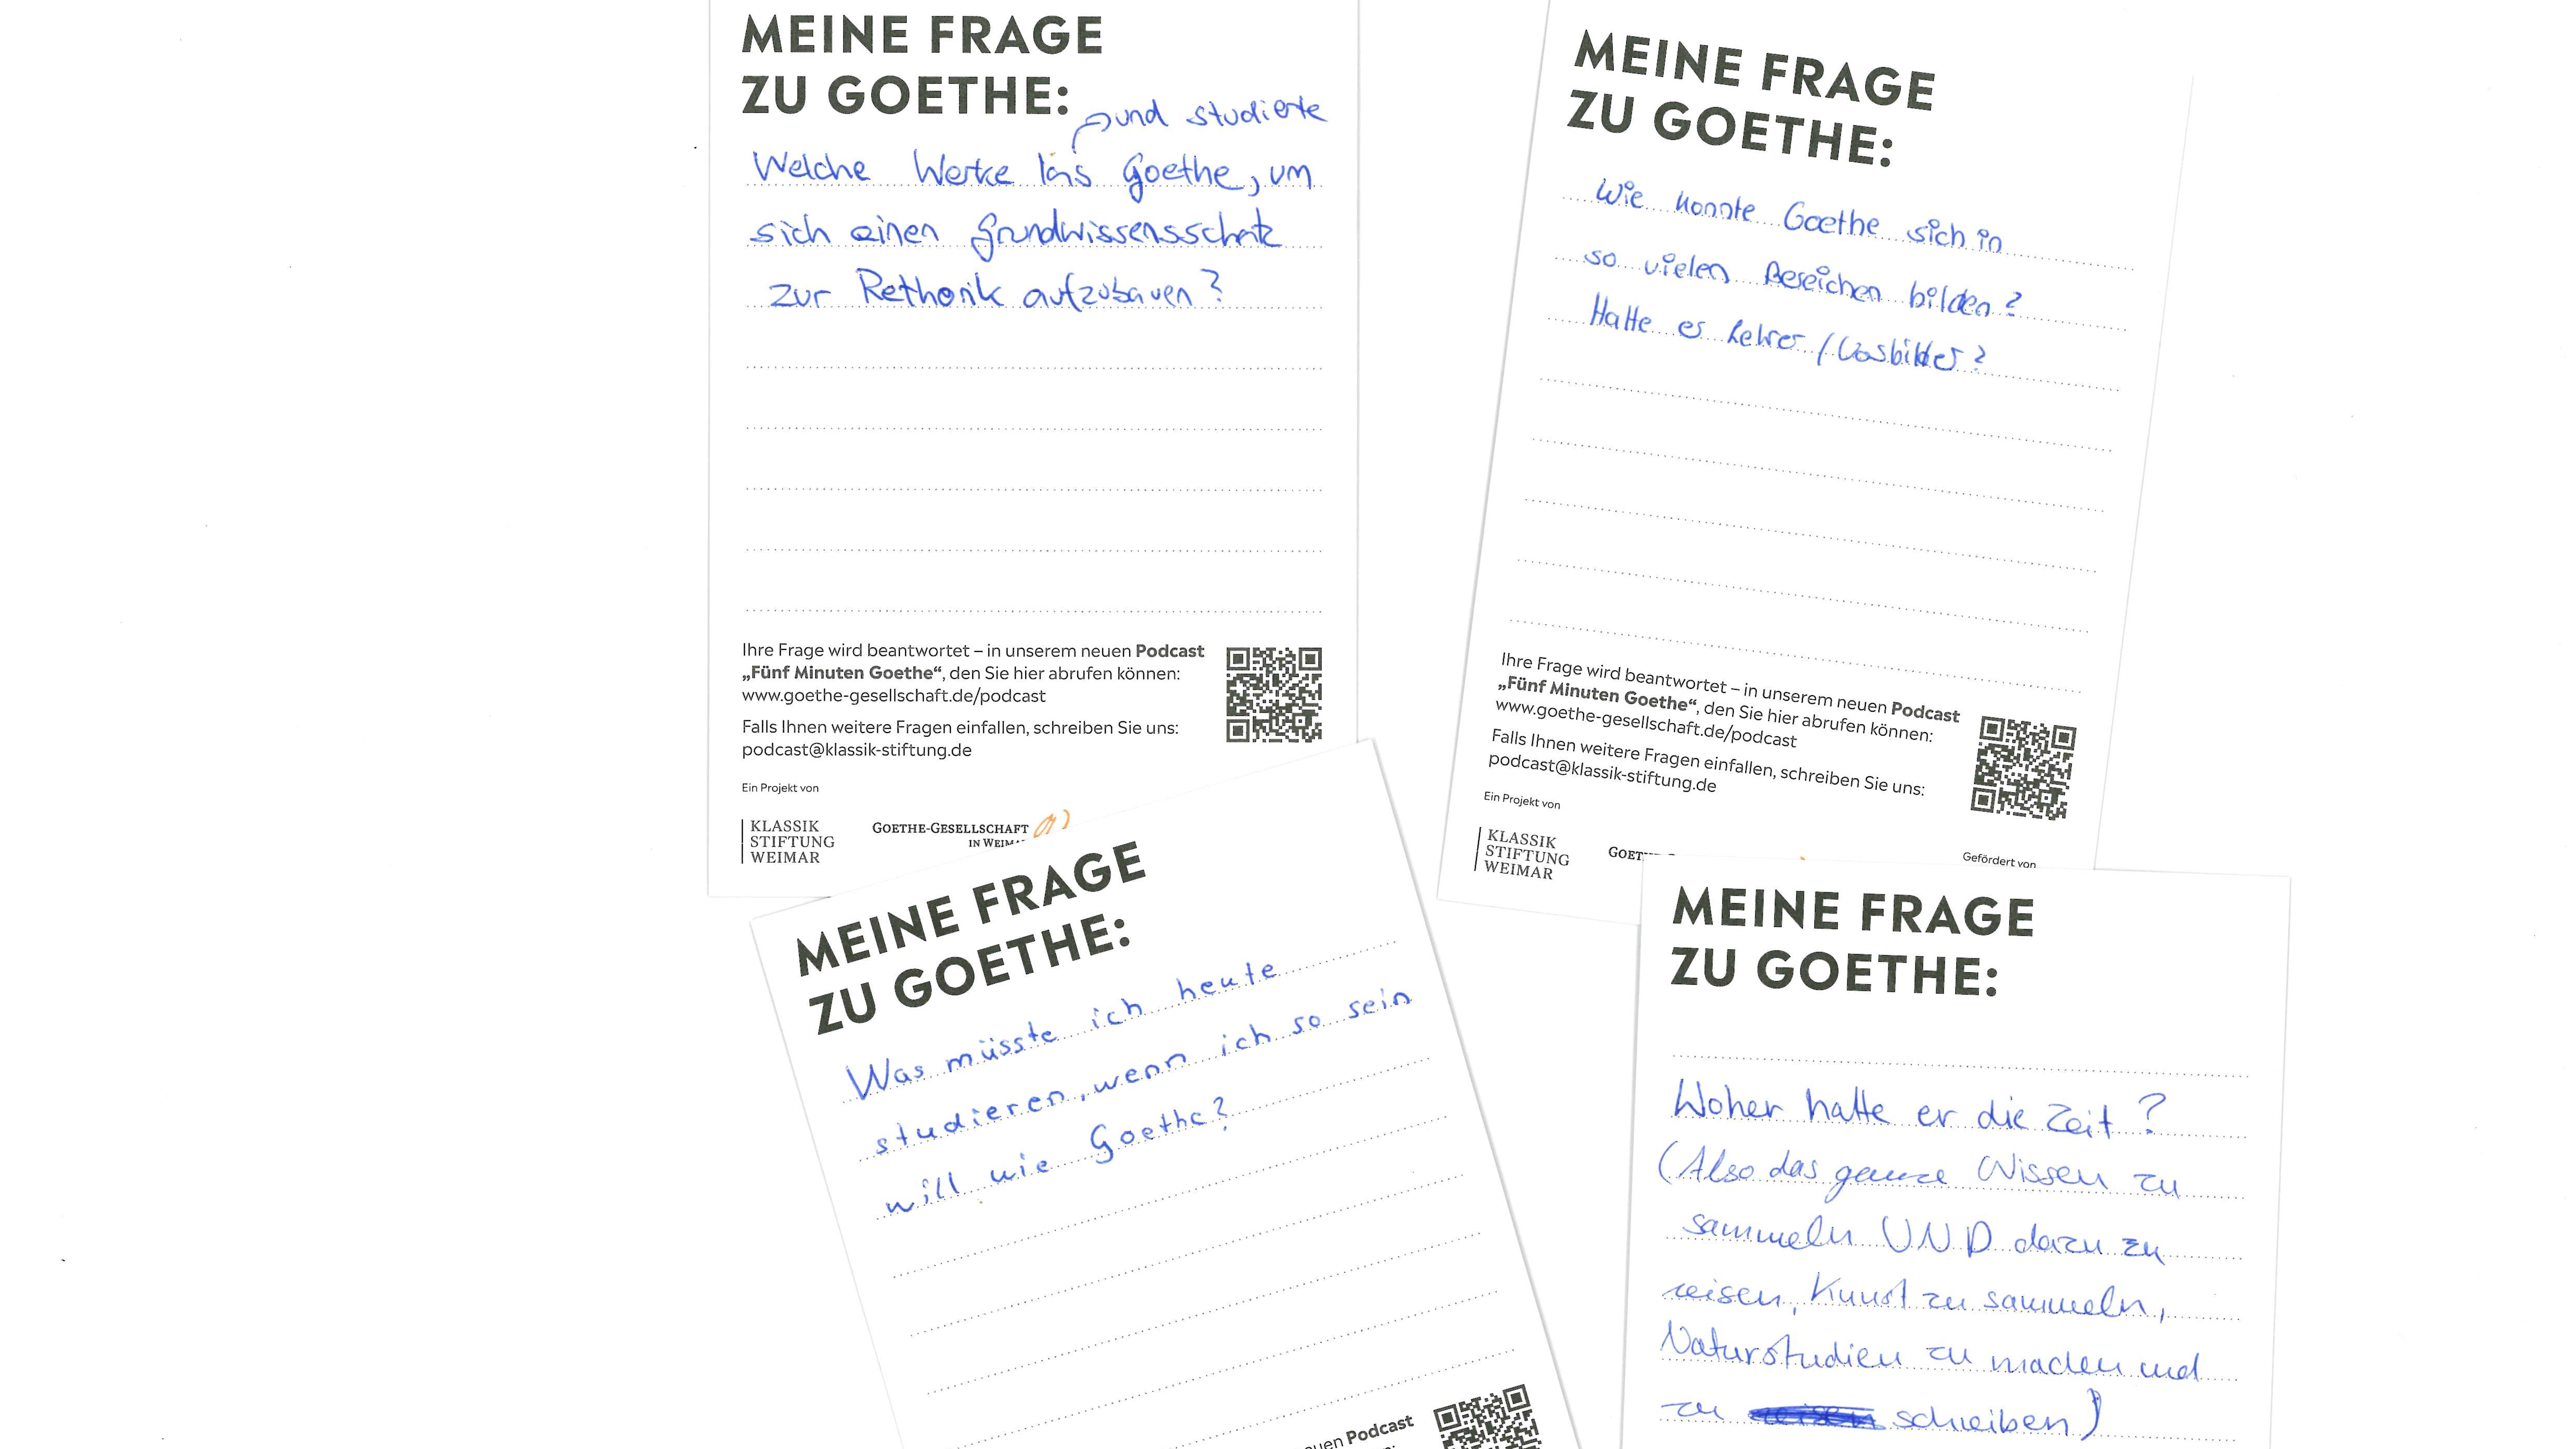 MEINE FRAGE
ZU GOETHE:
und studierte
Welche Werke las Goethe, um
sich einen Grundwissensschatz
zur Rethorik aufzubauen?
Ihre Frage wird beantwortet – in unserem neuen Podcast
„Fünf Minuten Goethe“, den Sie hier abrufen können:
www.goethe-gesellschaft.de/podcast
Falls Ihnen weitere Fragen einfallen, schreiben Sie uns:
podcast@klassik-stiftung.de
Ein Projekt von
KLASSIK
STIFTUNG
WEIMAR
GOETHE-GESELLSCHAFT
IN
MEINE FRAGE
ZU GOETHE:
Wie konnte Goethe sich in
so vielen Bereichen bilden?
Hatte er Lehrer / Vorbilder?
Ihre Frage wird beantwortet – in unserem neuen Podcast
„Fünf Minuten Goethe“, den Sie hier abrufen können:
www.goethe-gesellschaft.de/podcast
Falls Ihnen weitere Fragen einfallen, schreiben Sie uns:
podcast@klassik-stiftung.de
Ein Projekt von
KLASSIK
STIFTUNG
WEIMAR
Gefördert von
MEINE FRAGE
ZU GOETHE:
Was müsste ich heute
studieren, wenn ich so sein
will wie Goethe?
Podcast
MEINE FRAGE
ZU GOETHE:
Woher hatte er die Zeit?
(Also das ganze Wissen zu
sammeln UND dazu zu
reisen, Kunst zu sammeln,
Naturstudien zu machen und
zu schreiben)